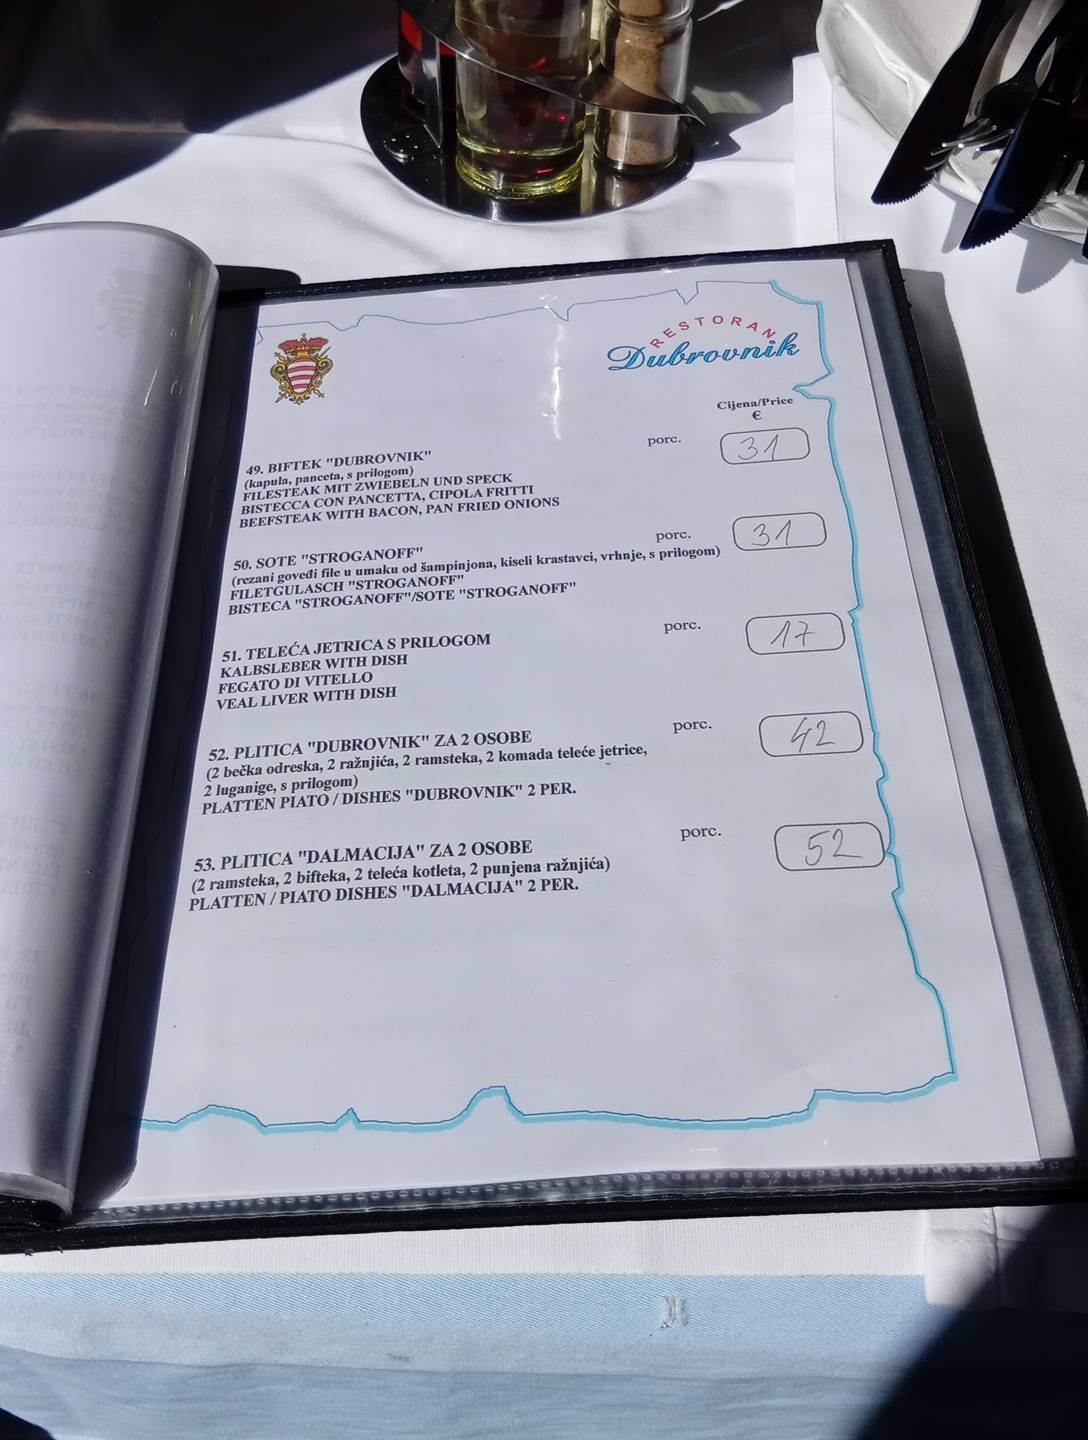 RESTORAN
Dubrovnik
Cijena/Price
€
49. BIFTEK "DUBROVNIK" porc. 31
(kapula, panceta, s prilogom)
FILESTEAK MIT ZWIEBELN UND SPECK
BISTECCA CON PANCETTA, CIPOLA FRITTI
BEEFSTEAK WITH BACON, PAN FRIED ONIONS
50. SOTE "STROGANOFF" porc. 31
(rezani goveđi file u umaku od šampinjona, kiseli krastavci, vrhnje, s prilogom)
FILETGULASCH "STROGANOFF"
BISTECA "STROGANOFF"/SOTE "STROGANOFF"
51. TELEĆA JETRICA S PRILOGOM porc. 17
KALBSLEBER WITH DISH
FEGATO DI VITELLO
VEAL LIVER WITH DISH
52. PLITICA "DUBROVNIK" ZA 2 OSOBE porc. 42
(2 bečka odreska, 2 ražnjića, 2 ramsteka, 2 komada teleće jetrice,
2 luganige, s prilogom)
PLATTEN PIATO / DISHES "DUBROVNIK" 2 PER.
53. PLITICA "DALMACIJA" ZA 2 OSOBE porc. 52
(2 ramsteka, 2 bifteka, 2 teleća kotleta, 2 punjena ražnjića)
PLATTEN / PIATO DISHES "DALMACIJA" 2 PER.